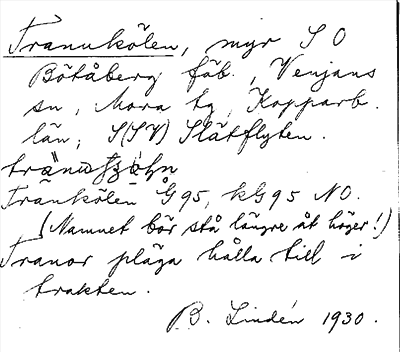 Trannkölen, myr S O
Bötåberg fäb., Venjans
sn, Mora tg, Kopparb.
län; S(SV) Slätflyten.
Trankölen G95, kG95 NO.
(Namnet bör stå längre åt höger!)
Tranor pläga hålla till i
trakten.
B. Lindén 1930.